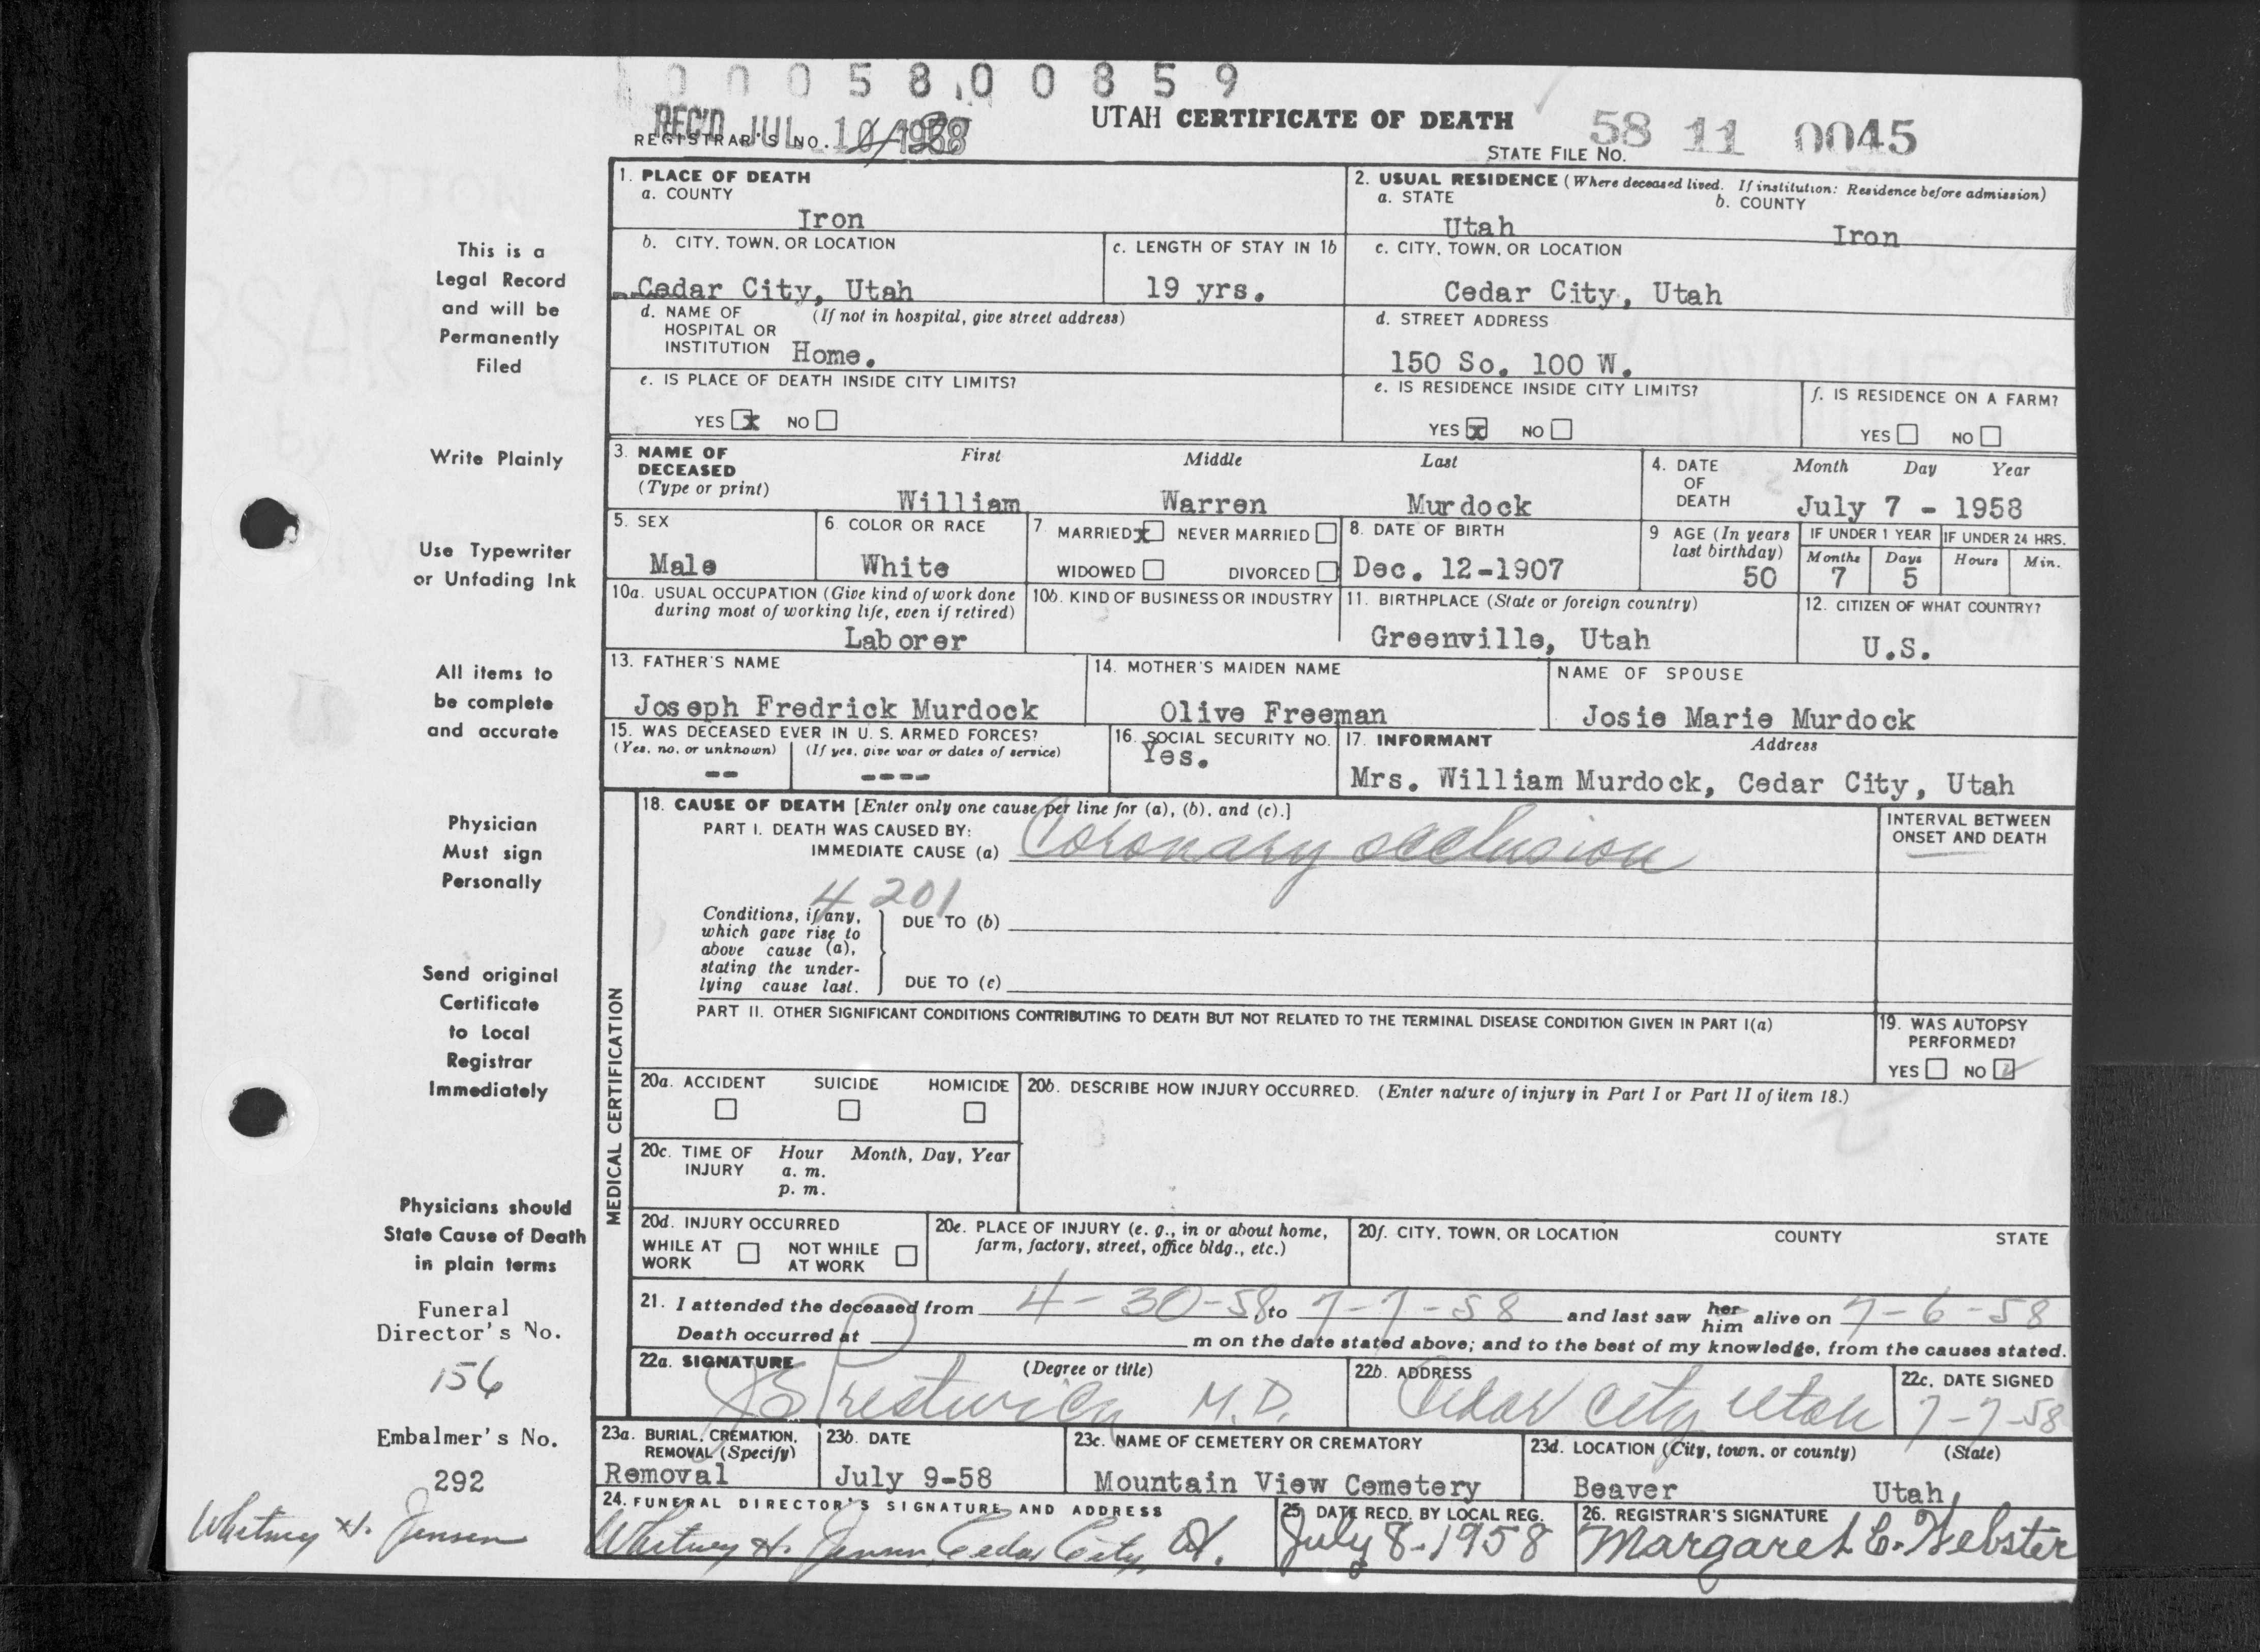 0 0 0 5 8 0 0 8 5 9
REC'D JUL 10 1958
REGISTRAR'S NO.
UTAH CERTIFICATE OF DEATH
STATE FILE NO. 58 11 0045
This is a
Legal Record
and will be
Permanently
Filed
Write Plainly
Use Typewriter
or Unfading Ink
All items to
be complete
and accurate
Physician
Must sign
Personally
Send original
Certificate
to Local
Registrar
Immediately
Physicians should
State Cause of Death
in plain terms
Funeral
Director's No.
156
Embalmer's No.
292
Whitney H. Jensen
1. PLACE OF DEATH
a. COUNTY
Iron
b. CITY, TOWN, OR LOCATION
Cedar City, Utah
c. LENGTH OF STAY IN 1b
19 yrs.
d. NAME OF (If not in hospital, give street address)
HOSPITAL OR
INSTITUTION Home.
e. IS PLACE OF DEATH INSIDE CITY LIMITS?
YES x NO
2. USUAL RESIDENCE (Where deceased lived. If institution: Residence before admission)
a. STATE b. COUNTY
Utah Iron
c. CITY, TOWN, OR LOCATION
Cedar City, Utah
d. STREET ADDRESS
150 So. 100 W.
e. IS RESIDENCE INSIDE CITY LIMITS?
YES x NO
f. IS RESIDENCE ON A FARM?
YES NO
3. NAME OF DECEASED (Type or print)
First Middle Last
William Warren Murdock
4. DATE OF DEATH
Month Day Year
July 7 - 1958
5. SEX
Male
6. COLOR OR RACE
White
7. MARRIED x NEVER MARRIED
WIDOWED DIVORCED
8. DATE OF BIRTH
Dec. 12-1907
9 AGE (In years last birthday)
50
IF UNDER 1 YEAR
Months Days
7 5
IF UNDER 24 HRS.
Hours Min.
10a. USUAL OCCUPATION (Give kind of work done
during most of working life, even if retired)
Laborer
10b. KIND OF BUSINESS OR INDUSTRY
11. BIRTHPLACE (State or foreign country)
Greenville, Utah
12. CITIZEN OF WHAT COUNTRY?
U.S.
13. FATHER'S NAME
Joseph Fredrick Murdock
14. MOTHER'S MAIDEN NAME
Olive Freeman
NAME OF SPOUSE
Josie Marie Murdock
15. WAS DECEASED EVER IN U. S. ARMED FORCES?
(Yes, no, or unknown) (If yes, give war or dates of service)
-- ----
16. SOCIAL SECURITY NO.
Yes.
17. INFORMANT Address
Mrs. William Murdock, Cedar City, Utah
MEDICAL CERTIFICATION
18. CAUSE OF DEATH [Enter only one cause per line for (a), (b), and (c).]
PART I. DEATH WAS CAUSED BY:
IMMEDIATE CAUSE (a) Coronary occlusion
INTERVAL BETWEEN
ONSET AND DEATH
4201
Conditions, if any,
which gave rise to
above cause (a),
stating the under-
lying cause last.
DUE TO (b)
DUE TO (c)
PART II. OTHER SIGNIFICANT CONDITIONS CONTRIBUTING TO DEATH BUT NOT RELATED TO THE TERMINAL DISEASE CONDITION GIVEN IN PART I(a)
19. WAS AUTOPSY
PERFORMED?
YES NO ✓
20a. ACCIDENT SUICIDE HOMICIDE
20b. DESCRIBE HOW INJURY OCCURRED. (Enter nature of injury in Part I or Part II of item 18.)
20c. TIME OF Hour Month, Day, Year
INJURY a. m.
p. m.
20d. INJURY OCCURRED
WHILE AT WORK NOT WHILE AT WORK
20e. PLACE OF INJURY (e. g., in or about home,
farm, factory, street, office bldg., etc.)
20f. CITY, TOWN, OR LOCATION COUNTY STATE
21. I attended the deceased from 4-30-58 to 7-7-58 and last saw her him alive on 7-6-58
Death occurred at m on the date stated above; and to the best of my knowledge, from the causes stated.
22a. SIGNATURE (Degree or title)
Prestwich M.D.
22b. ADDRESS
Cedar City Utah
22c. DATE SIGNED
7-7-58
23a. BURIAL, CREMATION,
REMOVAL (Specify)
Removal
23b. DATE
July 9-58
23c. NAME OF CEMETERY OR CREMATORY
Mountain View Cemetery
23d. LOCATION (City, town, or county) (State)
Beaver Utah
24. FUNERAL DIRECTOR'S SIGNATURE AND ADDRESS
Whitney H. Jensen, Cedar City, Ut.
25. DATE RECD. BY LOCAL REG.
July 8-1958
26. REGISTRAR'S SIGNATURE
Margaret C. Webster